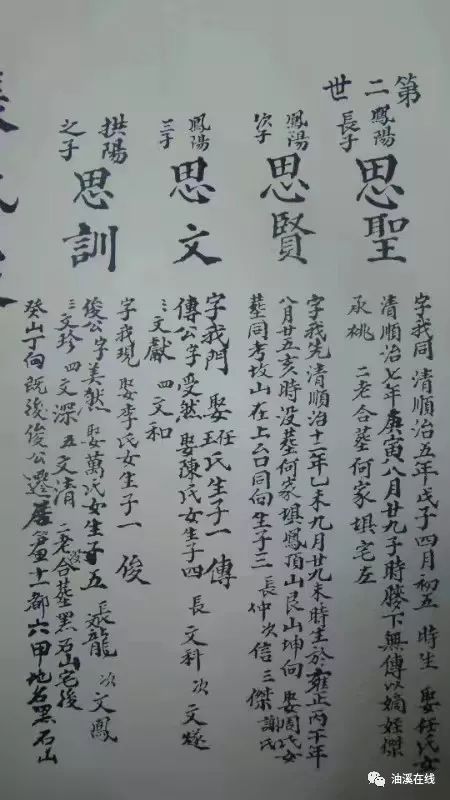 第二世
鳳陽長子
思聖
字我同 清順治五年戊子四月初五 時生 娶任氏女
清順治七年庚寅八月廿九子時 膝下無傳以嫡姪傑
承桃 二老合葬何家埧宅左
鳳陽次子
思賢
字我先清順治十二年乙未九月廿九未時生於雍正丙午年
八月廿五亥時没葬何家埧鳳頂山艮山坤向 娶周氏女
葬同考坟山在上台同向生子三 長仲次信三傑 謝氏
鳳陽三子
思文
字我門 娶任王氏生子一 傳
傳公字受然娶陳氏女生子四 長文科次文燧
三文獻 四文和
拱陽之子
思訓
字我現 娶李氏女生子一 俊
俊公字美然 娶萬氏女生子五 長張龍 次文鳳
三文珍 四文深 五文清 二老合葬黑石山宅後
癸山丁向既後俊公遷居 十一都六甲地名黑石山
油溪在线